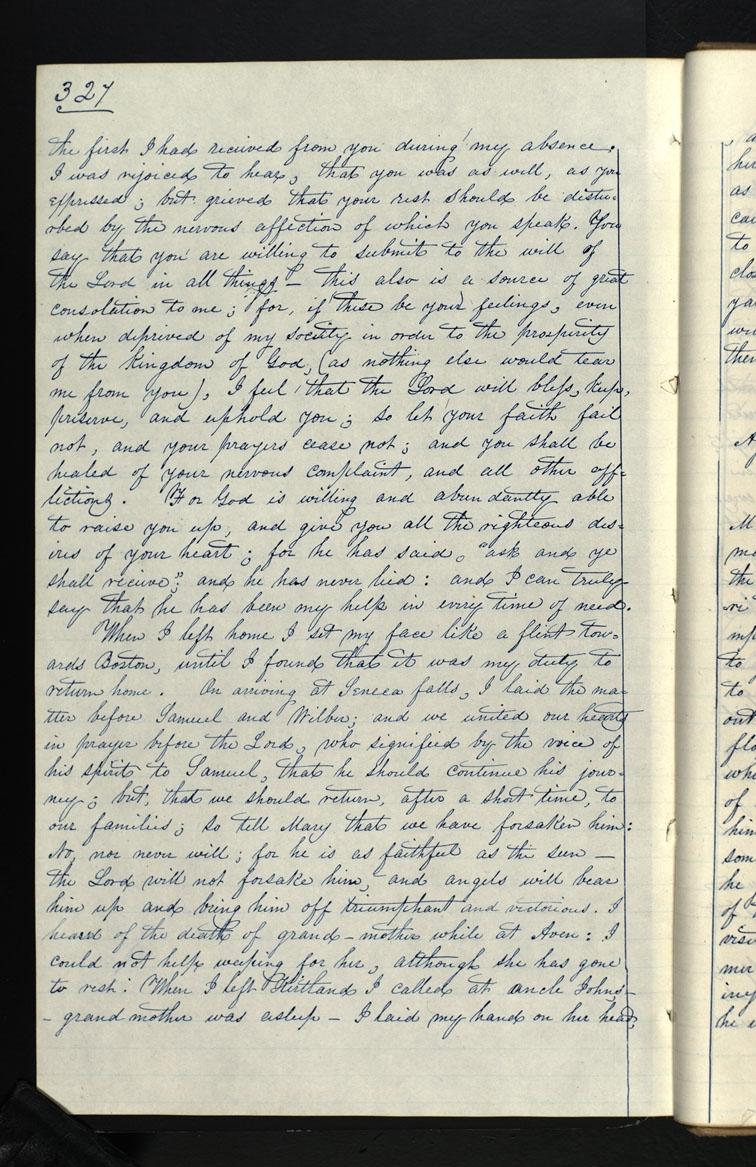 327
the first I had received from you during my absence.
I was rejoiced to hear, that you was as well, as you
expressed; but grieved that your rest should be distu-
rbed by the nervous affection of which you speak. You
say that you are willing to submit to the will of
the Lord in all things — this also is a source of great
consolation to me; for, if these be your feelings, even
when deprived of my society in order to the prosperity
of the kingdom of God, (as nothing else would tear
me from you), I feel that the Lord will bless, keep,
preserve, and uphold you; so let your faith fail
not, and your prayers cease not; and you shall be
healed of your nervous complaint, and all other aff-
lictions. For God is willing and abundantly able
to raise you up, and give you all the righteous des-
ires of your heart; for he has said, "ask and ye
shall receive"; and he has never lied: and I can truly
say that he has been my help in every time of need.
When I left home I set my face like a flint tow-
ards Boston, until I found that it was my duty to
return home. On arriving at Seneca falls, I laid the ma-
tter before Samuel and Wilber; and we united our hearts
in prayer before the Lord, who signified by the voice of
his spirit to Samuel, that he should continue his jour-
ney; but, that we should return, after a short time, to
our families; so tell Mary that we have forsaken him:
No, nor never will; for he is as faithful as the sun —
the Lord will not forsake him, and angels will bear
him up and bring him off triumphant and victorious. I
heard of the death of grand-mother while at Avon: I
could not help weeping for her, although she has gone
to rest: When I left Kirtland I called at uncle Johns-
- grand mother was asleep - I laid my hand on her head,